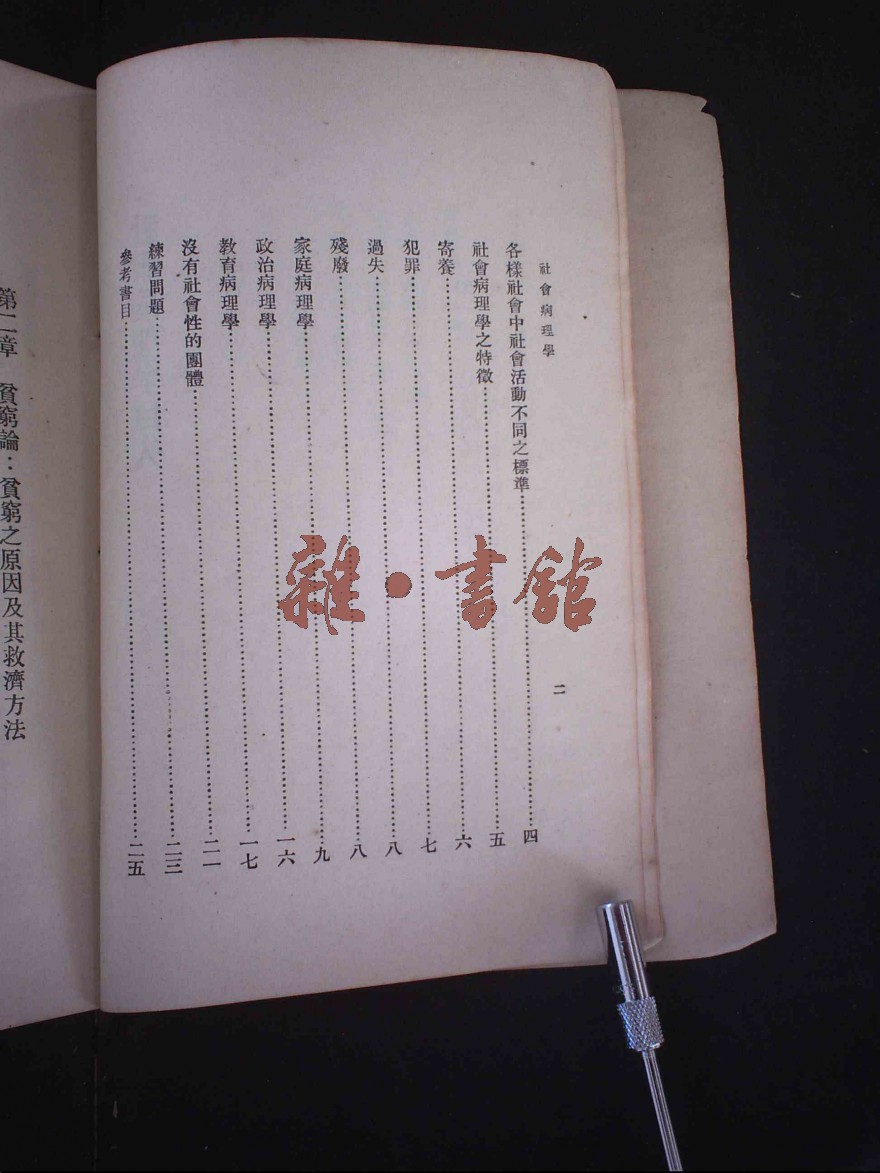 社會病理學
二
各樣社會中社會活動不同之標準……四
社會病理學之特徵……五
寄養……六
犯罪……七
過失……八
殘廢……八
家庭病理學……九
政治病理學……一六
教育病理學……一七
沒有社會性的團體……二一
練習問題……二三
參考書目……二五
第二章 貧窮論：貧窮之原因及其救濟方法
雜·書館